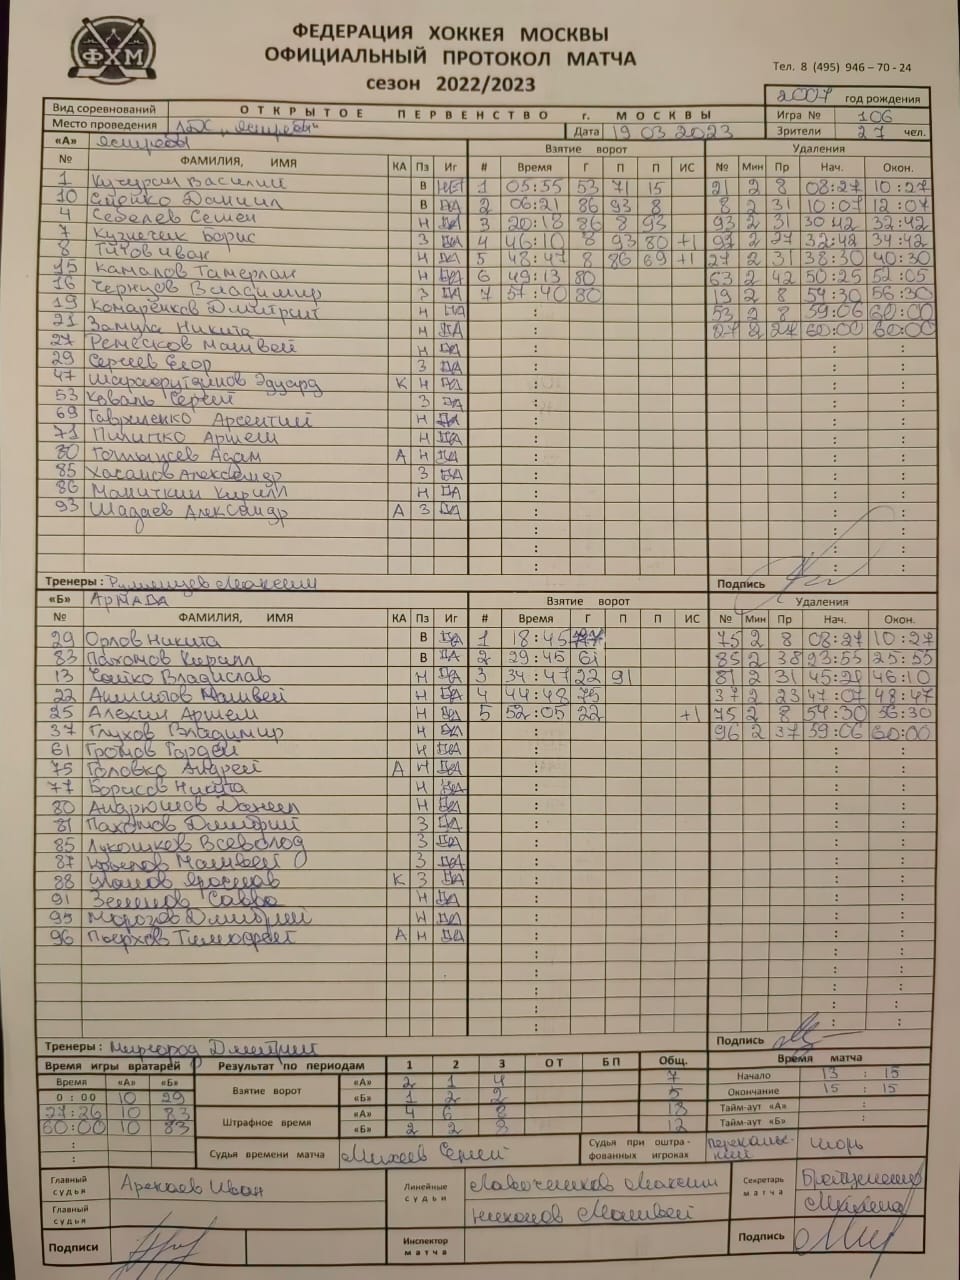 ФХМ
ФЕДЕРАЦИЯ ХОККЕЯ МОСКВЫ
ОФИЦИАЛЬНЫЙ ПРОТОКОЛ МАТЧА
сезон 2022/2023
Тел. 8 (495) 946 – 70 - 24
2007 год рождения
Вид соревнований ОТКРЫТОЕ ПЕРВЕНСТВО г. МОСКВЫ Игра № 106
Место проведения ЛДС "Ястребы" Дата 19 03 2023 Зрители 27 чел.
«А» Ястребы Взятие ворот Удаления
№ ФАМИЛИЯ, ИМЯ КА Пз Иг # Время Г П П ИС № Мин Пр Нач. Окон.
1 Василий В НЕТ 1 05:55 53 71 15 21 2 8 08:27 10:27
10 Даниил В ДА 2 06:21 86 93 8 8 2 31 10:07 12:07
4 Семён Н ДА 3 20:18 86 8 93 93 2 31 30 42 32:42
7 Кузнечик Борис З ДА 4 46:10 8 93 80 +1 97 2 27 32:42 34:42
8 Титов Иван Н ДА 5 48:47 8 86 69 +1 27 2 31 38:30 40:30
15 Камалов Тамерлан Н ДА 6 49:13 80 63 2 42 50:25 52:05
16 Чернцов Владимир З ДА 7 57:40 80 19 2 8 54:30 56:30
19 Комаренков Дмитрий Н ДА : 53 2 8 59:06 60:00
21 Замула Никита Н ДА : 27 2 27 60:00 60:00
27 Матвей Н ДА : : :
29 Сергеев Егор З ДА : : :
47 Шарафутдинов Эдуард К Н ДА : : :
53 Коваль Сергей З ДА : : :
69 Гавриленко Арсентий Н ДА : : :
71 Пилипко Артем Н ДА : : :
80 Адам А Н ДА : : :
85 Хасанов Александр З ДА : : :
86 Маниткин Кирилл Н ДА : : :
93 Шадаев Александр А З ДА : : :
Тренеры : Румянцев Максим Подпись
«Б» АРМАДА Взятие ворот Удаления
№ ФАМИЛИЯ, ИМЯ КА Пз Иг # Время Г П П ИС № Мин Пр Нач. Окон.
29 Орлов Никита В ДА 1 18:45 77 75 2 8 08:27 10:27
83 Пахомов Кирилл В ДА 2 29:45 61 85 2 38 23:55 25:55
13 Чайко Владислав Н ДА 3 34:47 22 91 81 2 31 45:21 46:10
22 Матвей Н ДА 4 44:48 75 37 2 23 47:07 48:47
25 Алехин Артем Н ДА 5 52:05 22 +1 75 2 8 54:30 56:30
37 Глухов Владимир Н ДА 96 2 37 59:06 60:00
61 Громов Гордей Н ДА : : :
75 Головко Андрей А Н ДА : : :
77 Борисов Никита Н ДА : : :
80 Андрюшов Даниил Н ДА : : :
81 Пахомов Дмитрий З ДА : : :
85 Лукошков Всеволод З ДА : : :
87 Матвей З ДА : : :
88 Ярослав К З ДА : : :
91 Савва Н ДА : : :
95 Морозов Дмитрий Н ДА : : :
96 Тимофей А Н ДА : : :
Тренеры : Миргород Дмитрий Подпись
Время игры вратарей Результат по периодам 1 2 3 ОТ БП Общ. Время матча
Время «А» «Б» Взятие ворот «А» 2 1 4 7 Начало 13 : 15
0 : 00 10 29 «Б» 1 2 2 5 Окончание 15 : 15
27:26 10 83 Штрафное время «А» 4 6 8 18 Тайм-аут «А» :
60:00 10 83 «Б» 2 2 8 12 Тайм-аут «Б» :
Судья времени матча Михеев Сергей Судья при оштрафованных игроках Игорь
Главный судья Иван Линейные судьи Лавочников Максим Секретарь матча
Главный судья Никонов Матвей
Подписи Инспектор матча Подпись